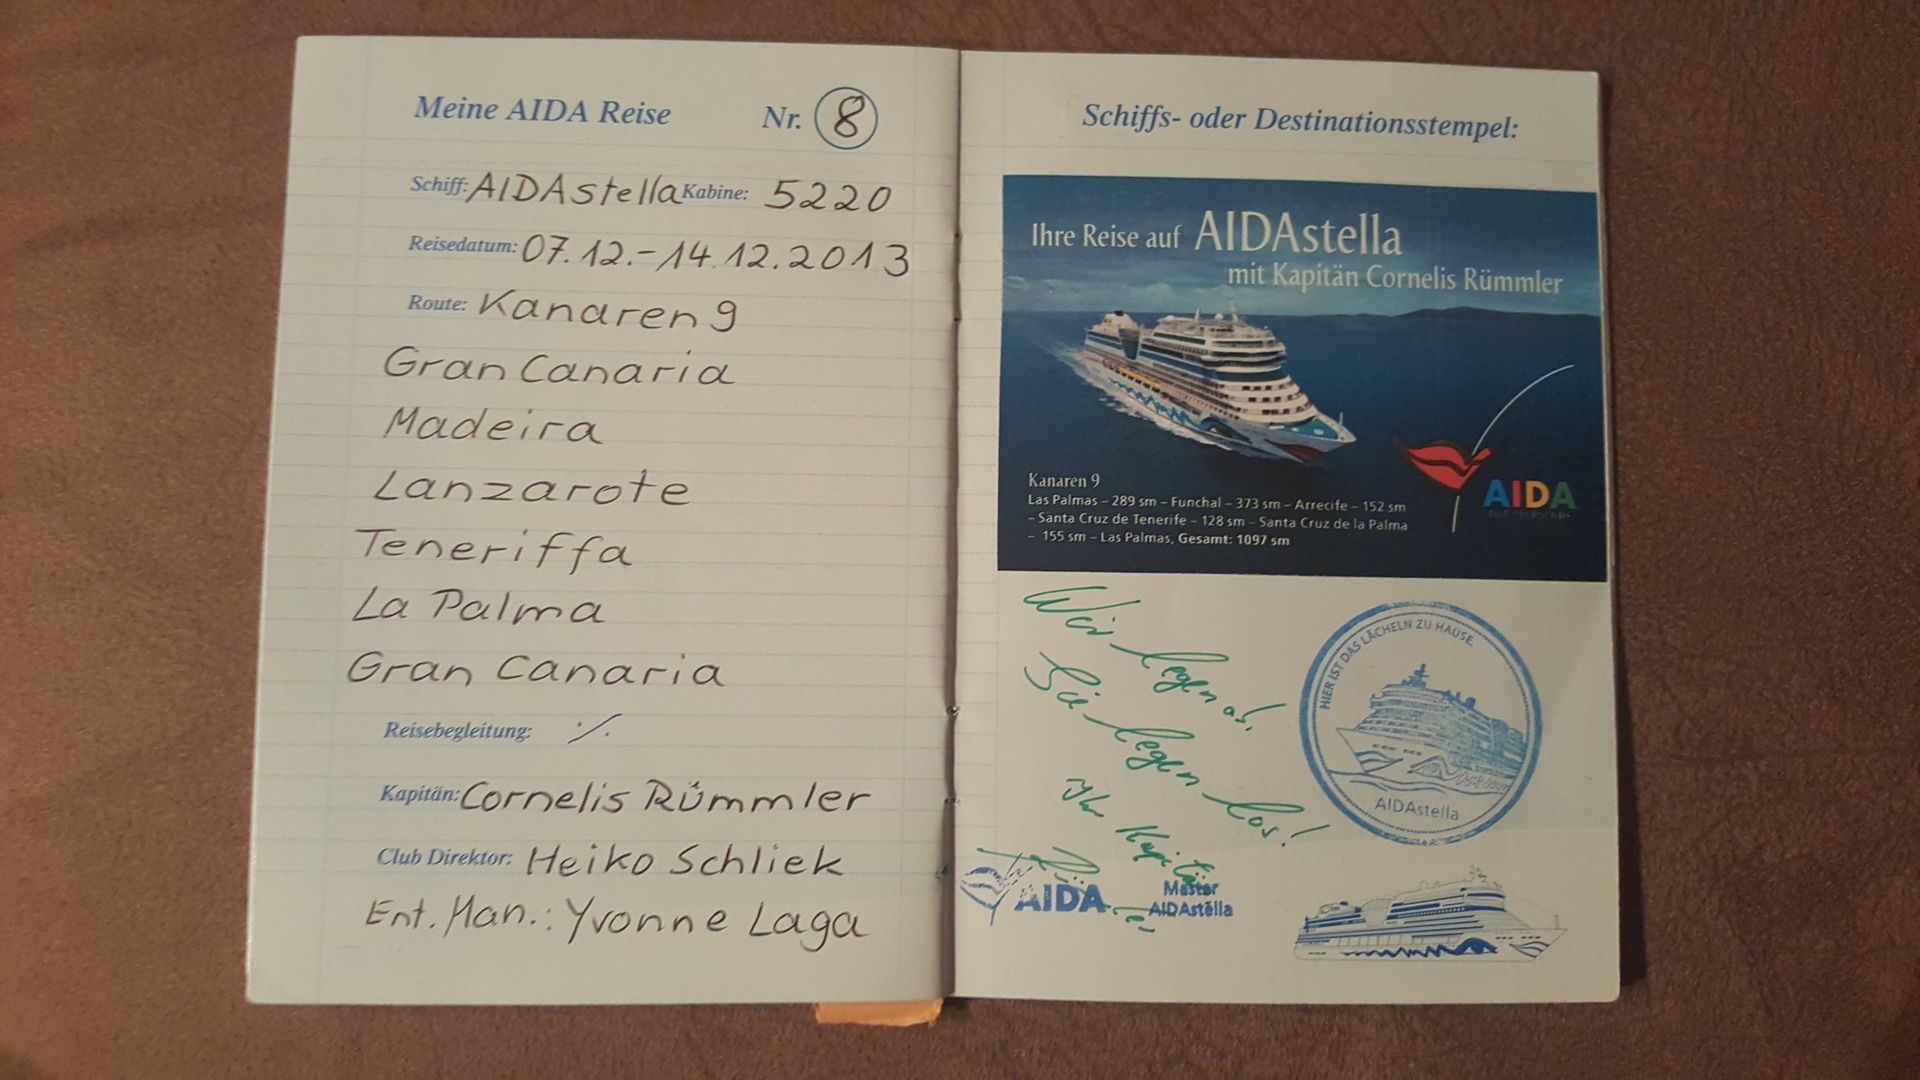 Meine AIDA Reise Nr. 8
Schiff: AIDAstella Kabine: 5220
Reisedatum: 07.12.-14.12.2013
Route: Kanaren 9
Gran Canaria
Madeira
Lanzarote
Teneriffa
La Palma
Gran Canaria
Reisebegleitung: ./.
Kapitän: Cornelis Rümmler
Club Direktor: Heiko Schliek
Ent. Man.: Yvonne Laga
Schiffs- oder Destinationsstempel:
Ihre Reise auf AIDAstella
mit Kapitän Cornelis Rümmler
AIDA
Kanaren 9
Las Palmas – 289 sm – Funchal – 373 sm – Arrecife – 152 sm
– Santa Cruz de Tenerife – 128 sm – Santa Cruz de la Palma
– 155 sm – Las Palmas, Gesamt: 1097 sm
Wir legen ab!
Sie legen los!
Ihr Kapitän
HIER IST DAS LÄCHELN ZU HAUSE.
AIDAstella
AIDA
Master
AIDAstella